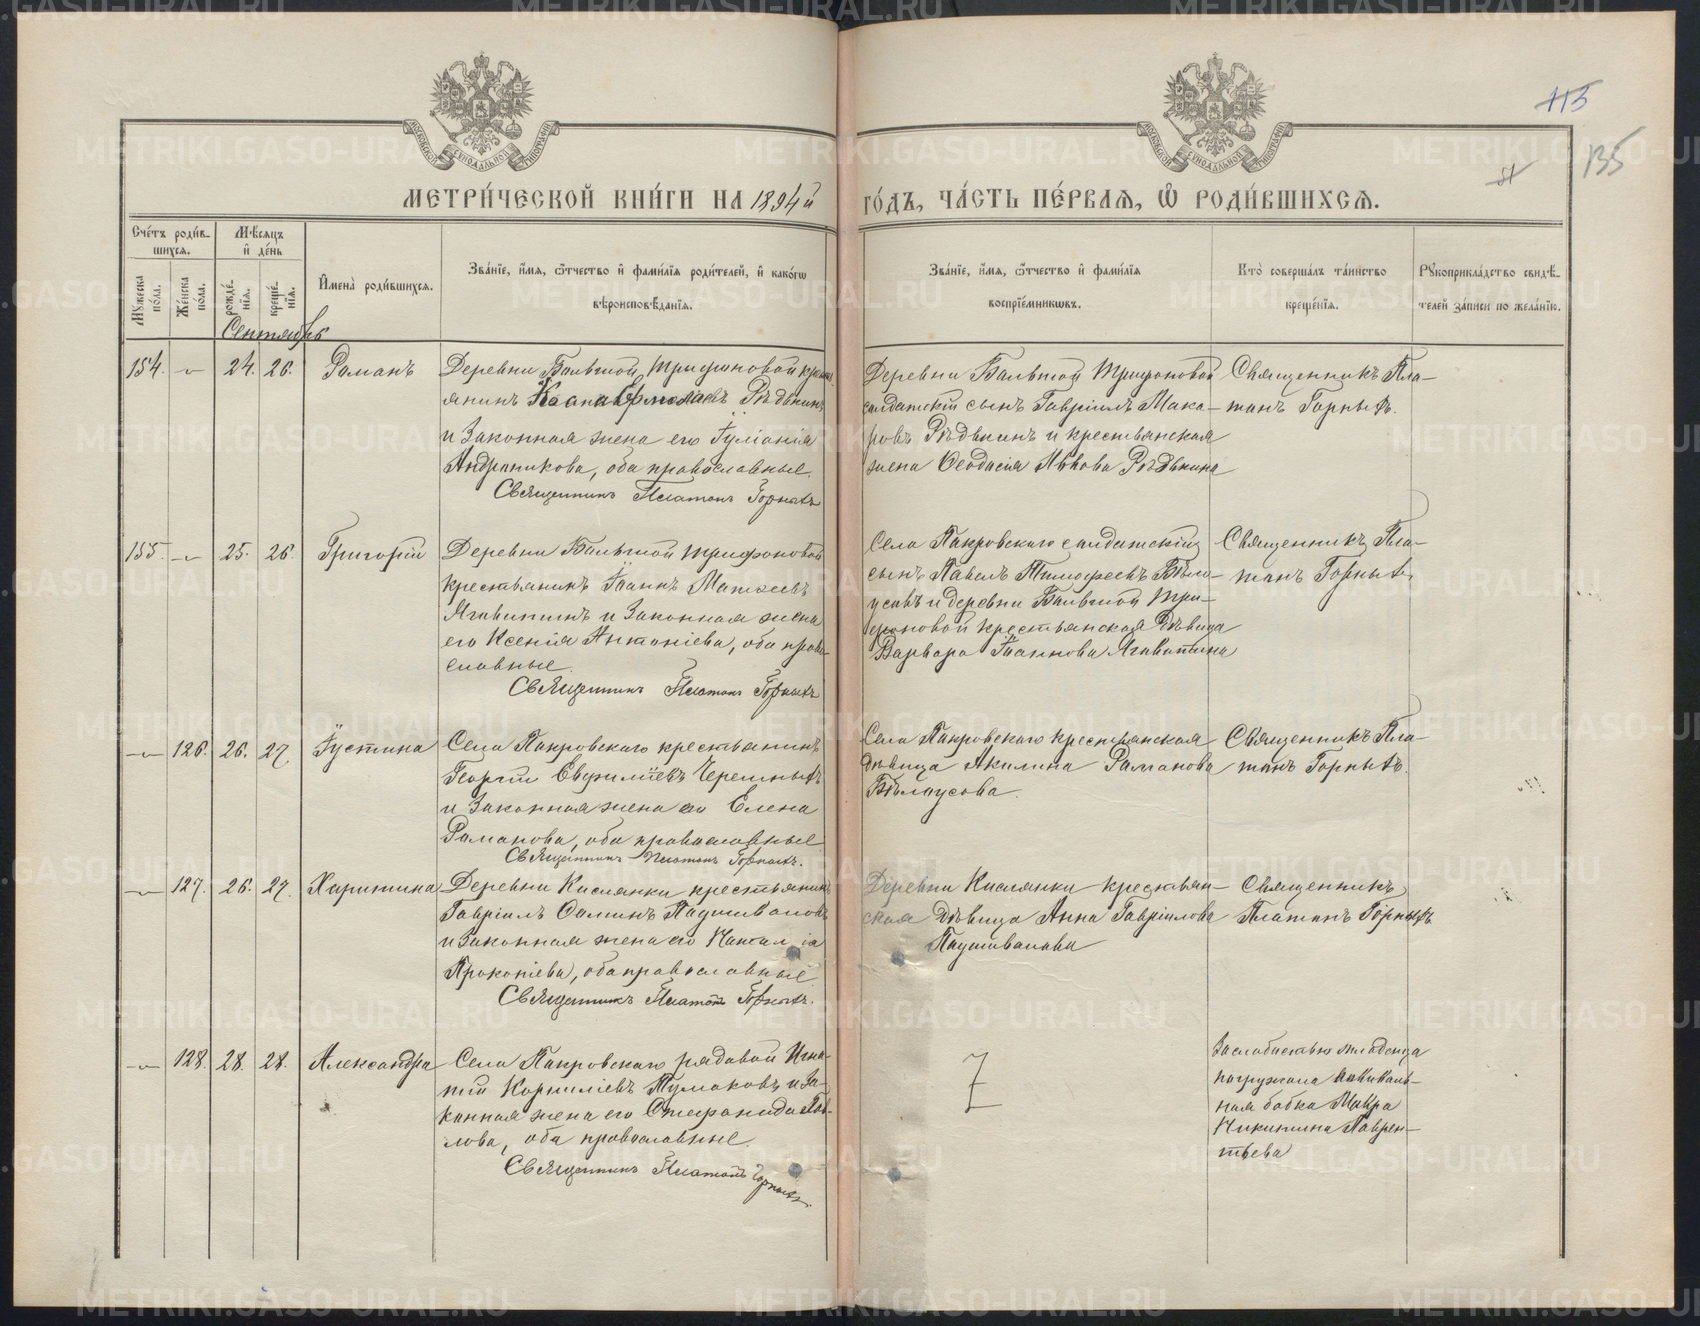 МОСКОВСКОЙ СѴНОДАЛЬНОЙ ТИПОГРАФІИ
МОСКОВСКОЙ СѴНОДАЛЬНОЙ ТИПОГРАФІИ
115
135
МЕТРИ́ЧЕСКОЙ КНИ́ГИ НА 1894й ГО́ДЪ, ЧА́СТЬ ПЕ́РВАЯ, Ѡ РОДИ́ВШИХСЯ.
Сче́тъ роди́в-
шихся.
Мѣ́сяцъ
и де́нь
Му́жеска
по́ла.
Же́нска
по́ла.
рожде́-
нїя.
креще́-
нїя.
И҆мена̀ роди́вшихся.
Зва́нїе, и҆́мя, ѻ҆́тчество и҆ фами́лїя роди́телей, и҆ како́гѡ
вѣроисповѣ́данїя.
Зва́нїе, и҆́мя, ѻ҆́тчество и҆ фами́лїя
воспрїе́мникѡвъ.
Кто̀ соверша́лъ та́инство
креще́нїя.
Рꙋкоприкла́дство свидѣ́-
телей за́писи по жела́нїю.
Сентябрь
154. — 24. 26. Романъ
Деревни Большой Трифоновой крестья-
янинъ Ермолаевъ Рѣдькинъ
и законная жена его Іуліанія
Андроникова, оба православные.
Священникъ Платонъ Горныхъ
Деревни Большой Трифоновой
солдатскій сынъ Гавріилъ Мака-
ровъ Рѣдькинъ и крестьянская
жена Ѳеодосія Рѣдькина
Священникъ Пла-
тонъ Горныхъ.
155. — 25. 26. Григорій
Деревни Большой Трифоновой
крестьянинъ Іоаннъ Матѳеевъ
и законная жена
его Ксенія Антоніева, оба право-
славные.
Священникъ Платонъ Горныхъ
Села Покровскаго солдатскій
сынъ Павелъ Тимофеевъ Бѣло-
усовъ и деревни Большой Три-
фоновой крестьянская дѣвица
Варвара Іоаннова
Священникъ Пла-
тонъ Горныхъ
— 126. 26. 27. Іустина
Села Покровскаго крестьянинъ
Георгій Евфиміевъ Черемныхъ
и законная жена его Елена
Романова, оба православные
Священникъ Платонъ Горныхъ.
Села Покровскаго крестьянская
дѣвица Акилина Романова
Бѣлоусова.
Священникъ Пла-
тонъ Горныхъ.
— 127. 26. 27. Харитина
Деревни Кислянки крестьянинъ
Гавріилъ Ѳоминъ
и законная жена его Наталія
Прокопіева, оба православные
Священникъ Платонъ Горныхъ.
Деревни Кислянки крестьян-
ская дѣвица Анна Гавріилова
Священникъ
Платонъ Горныхъ
— 128. 28. 28. Александра
Села Покровскаго рядовой Игна-
тій Корниліевъ Тумаковъ и за-
конная жена его Стефанида
лова, оба православные.
Священникъ Платонъ Горныхъ.
За слабостью младенца
погружала повиваль-
ная бабка Мавра
Никитина Лаврен-
тьева
METRIKI.GASO-URAL.RU